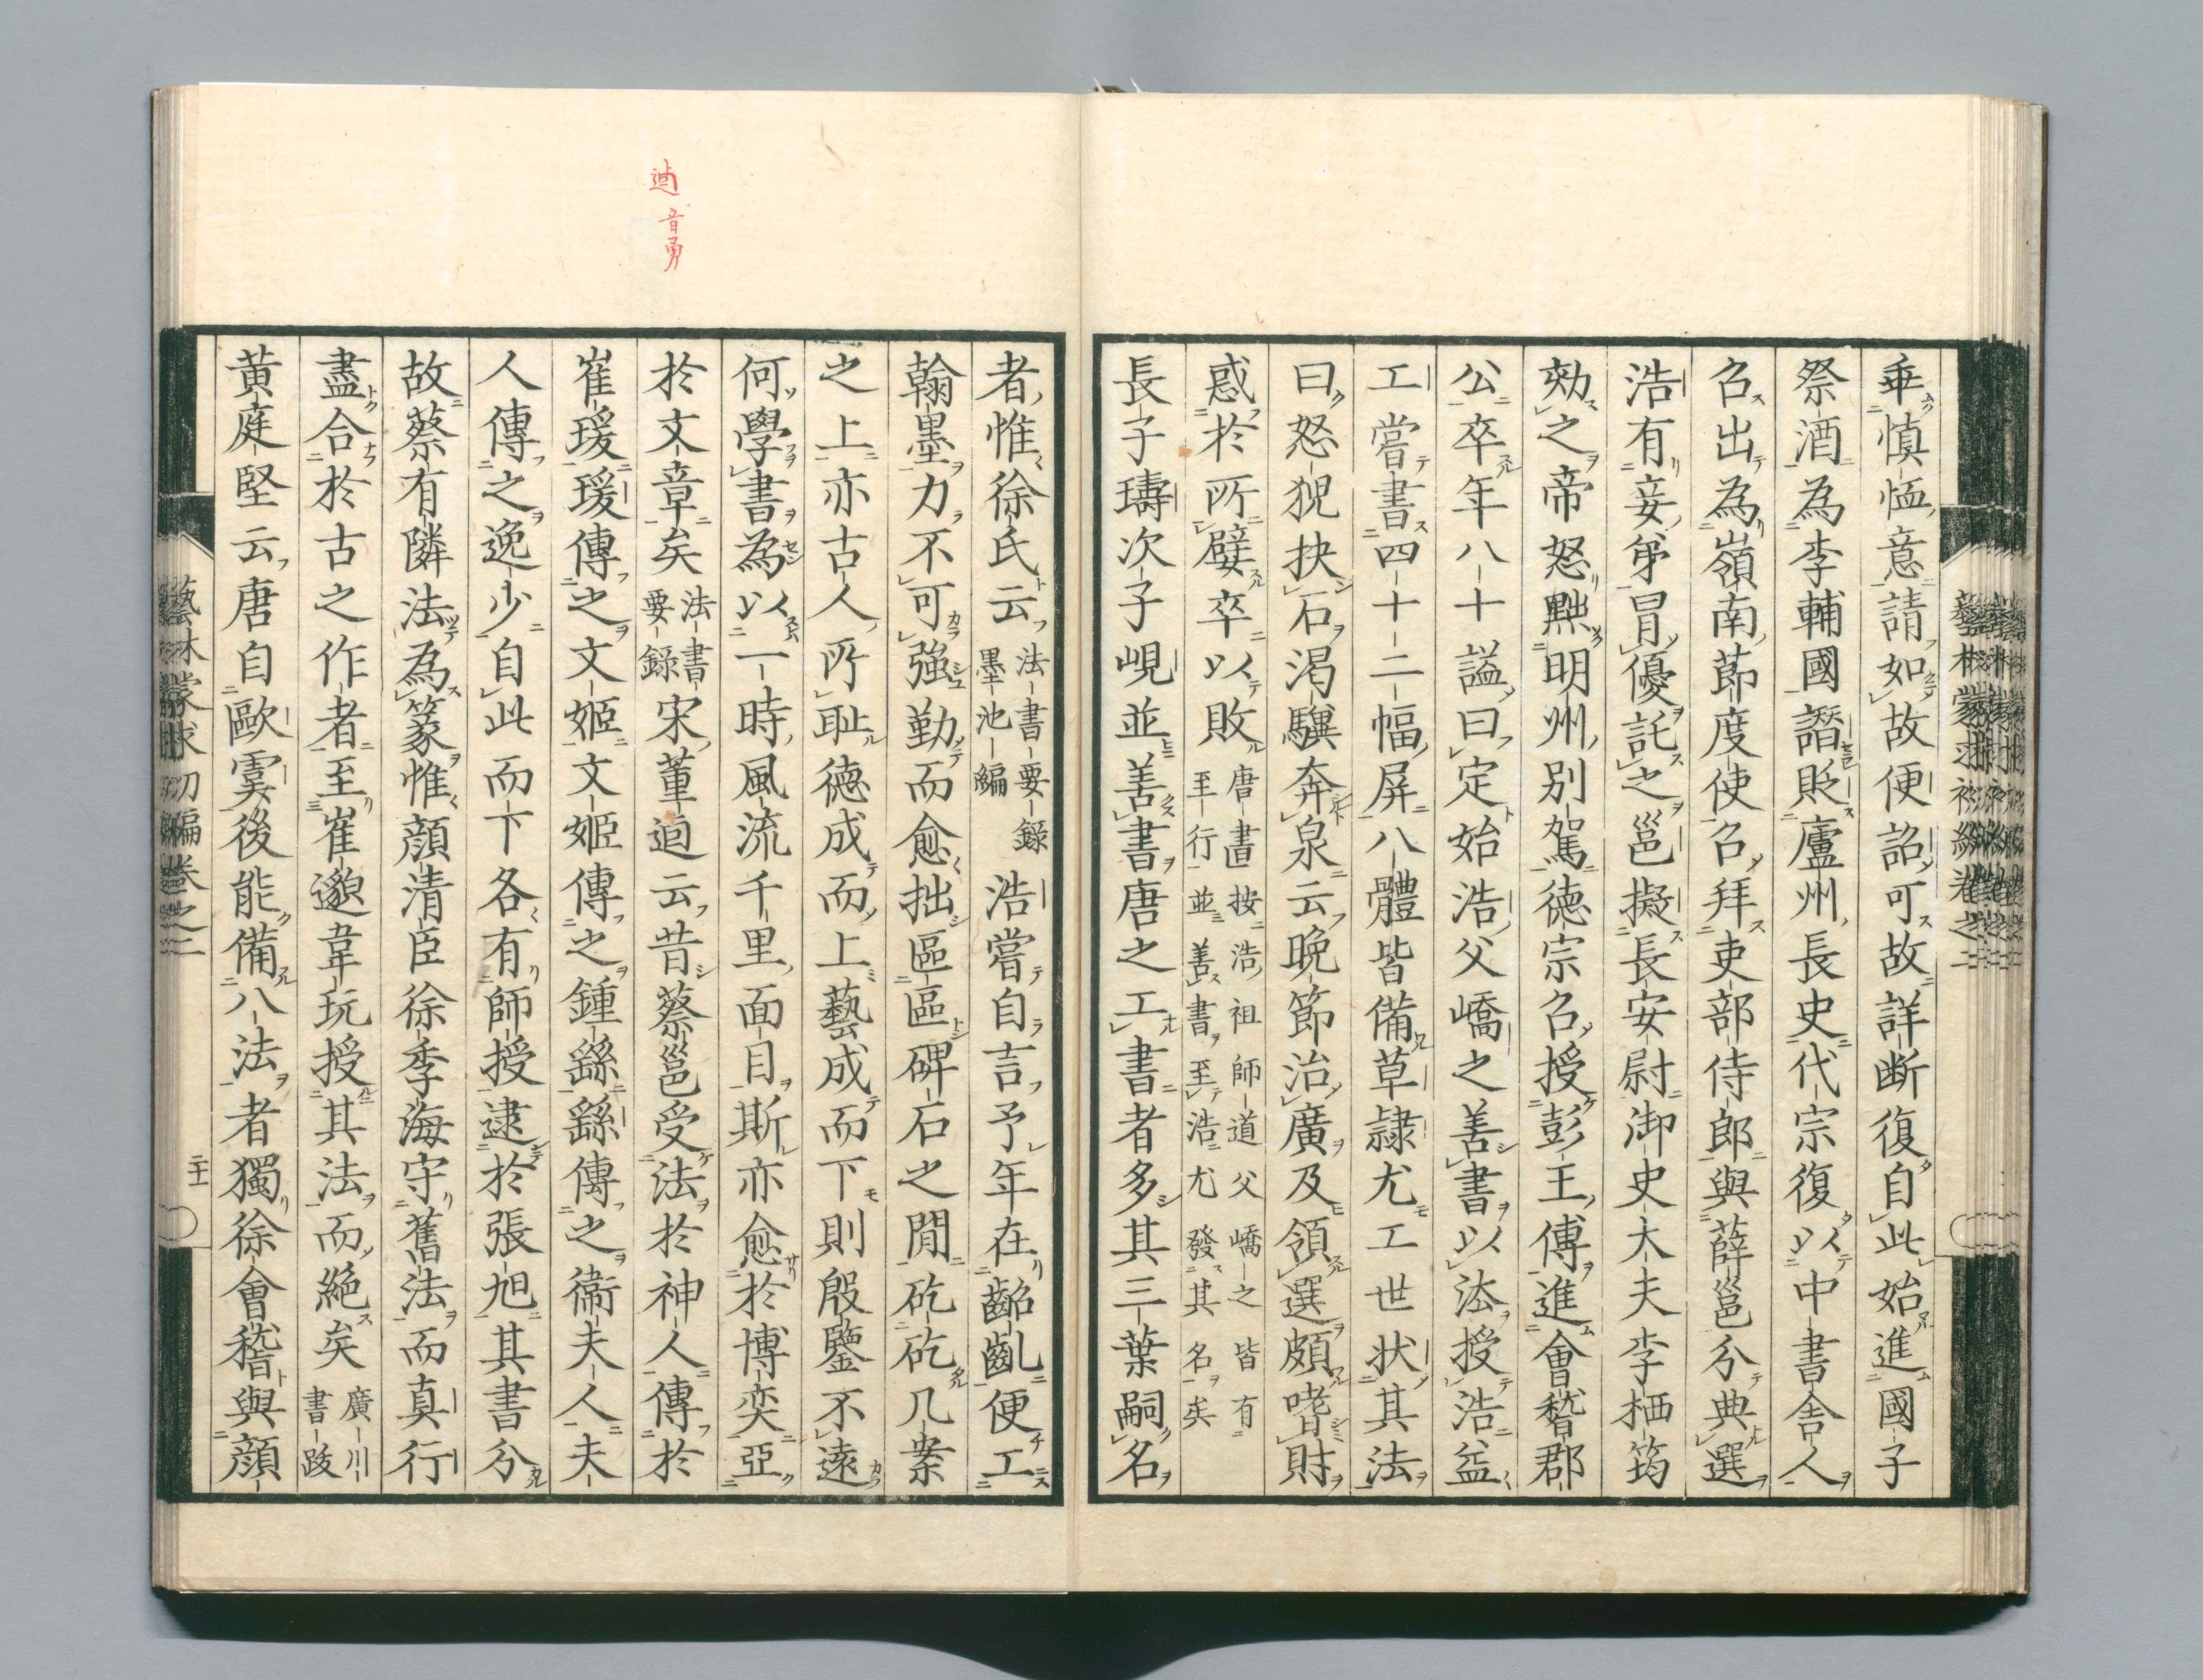 垂慎恤意請如故便詔可故詳断復自此始進國子
祭酒為李輔國譖貶廬州長史代宗復以中書舎人
召出為嶺南節度使召拜吏部侍郎與薛邕分典選
浩有妾弟冒優託之邕擬長安尉御史大夫李栖筠
劾之帝怒黜明州別駕德宗召授彭王傅進會稽郡
公卒年八十謚曰定始浩父嶠之善書以法授浩益
工嘗書四十二幅屏八體皆備草隷尤工世状其法
曰怒猊抉石渇驥奔泉云晩節治廣及領選頗嗜財
惑於所嬖卒以敗
唐書按浩祖師道父嶠之皆有
至行並善書至浩尤發其名矣
長子璹次子峴並善書唐之工書者多其三葉嗣名
者惟徐氏云
法書要録
墨池編
浩嘗自言予年在齠齔便工
翰墨力不可強勤而愈拙區區碑石之閒矻矻几案
之上亦古人所耻德成而上藝成而下則殷鑒不遠
何學書為以一時風流千里面目斯亦愈於博奕亞
於文章矣
法書
要録
宋董逌云昔蔡邕受法於神人傳於
崔瑗瑗傳之文姫文姫傳之鍾繇繇傳之衞夫人夫
人傳之逸少自此而下各有師授逮於張旭其書分
故蔡有隣法為篆惟顔清臣徐季海守舊法而真行
盡合於古之作者至崔邈韋玩授其法而絶矣
廣川
書跋
黄庭堅云唐自歐虞後能備八法者獨徐會稽與顔
逌音勇
藝林蒙求初編巻之二
二十